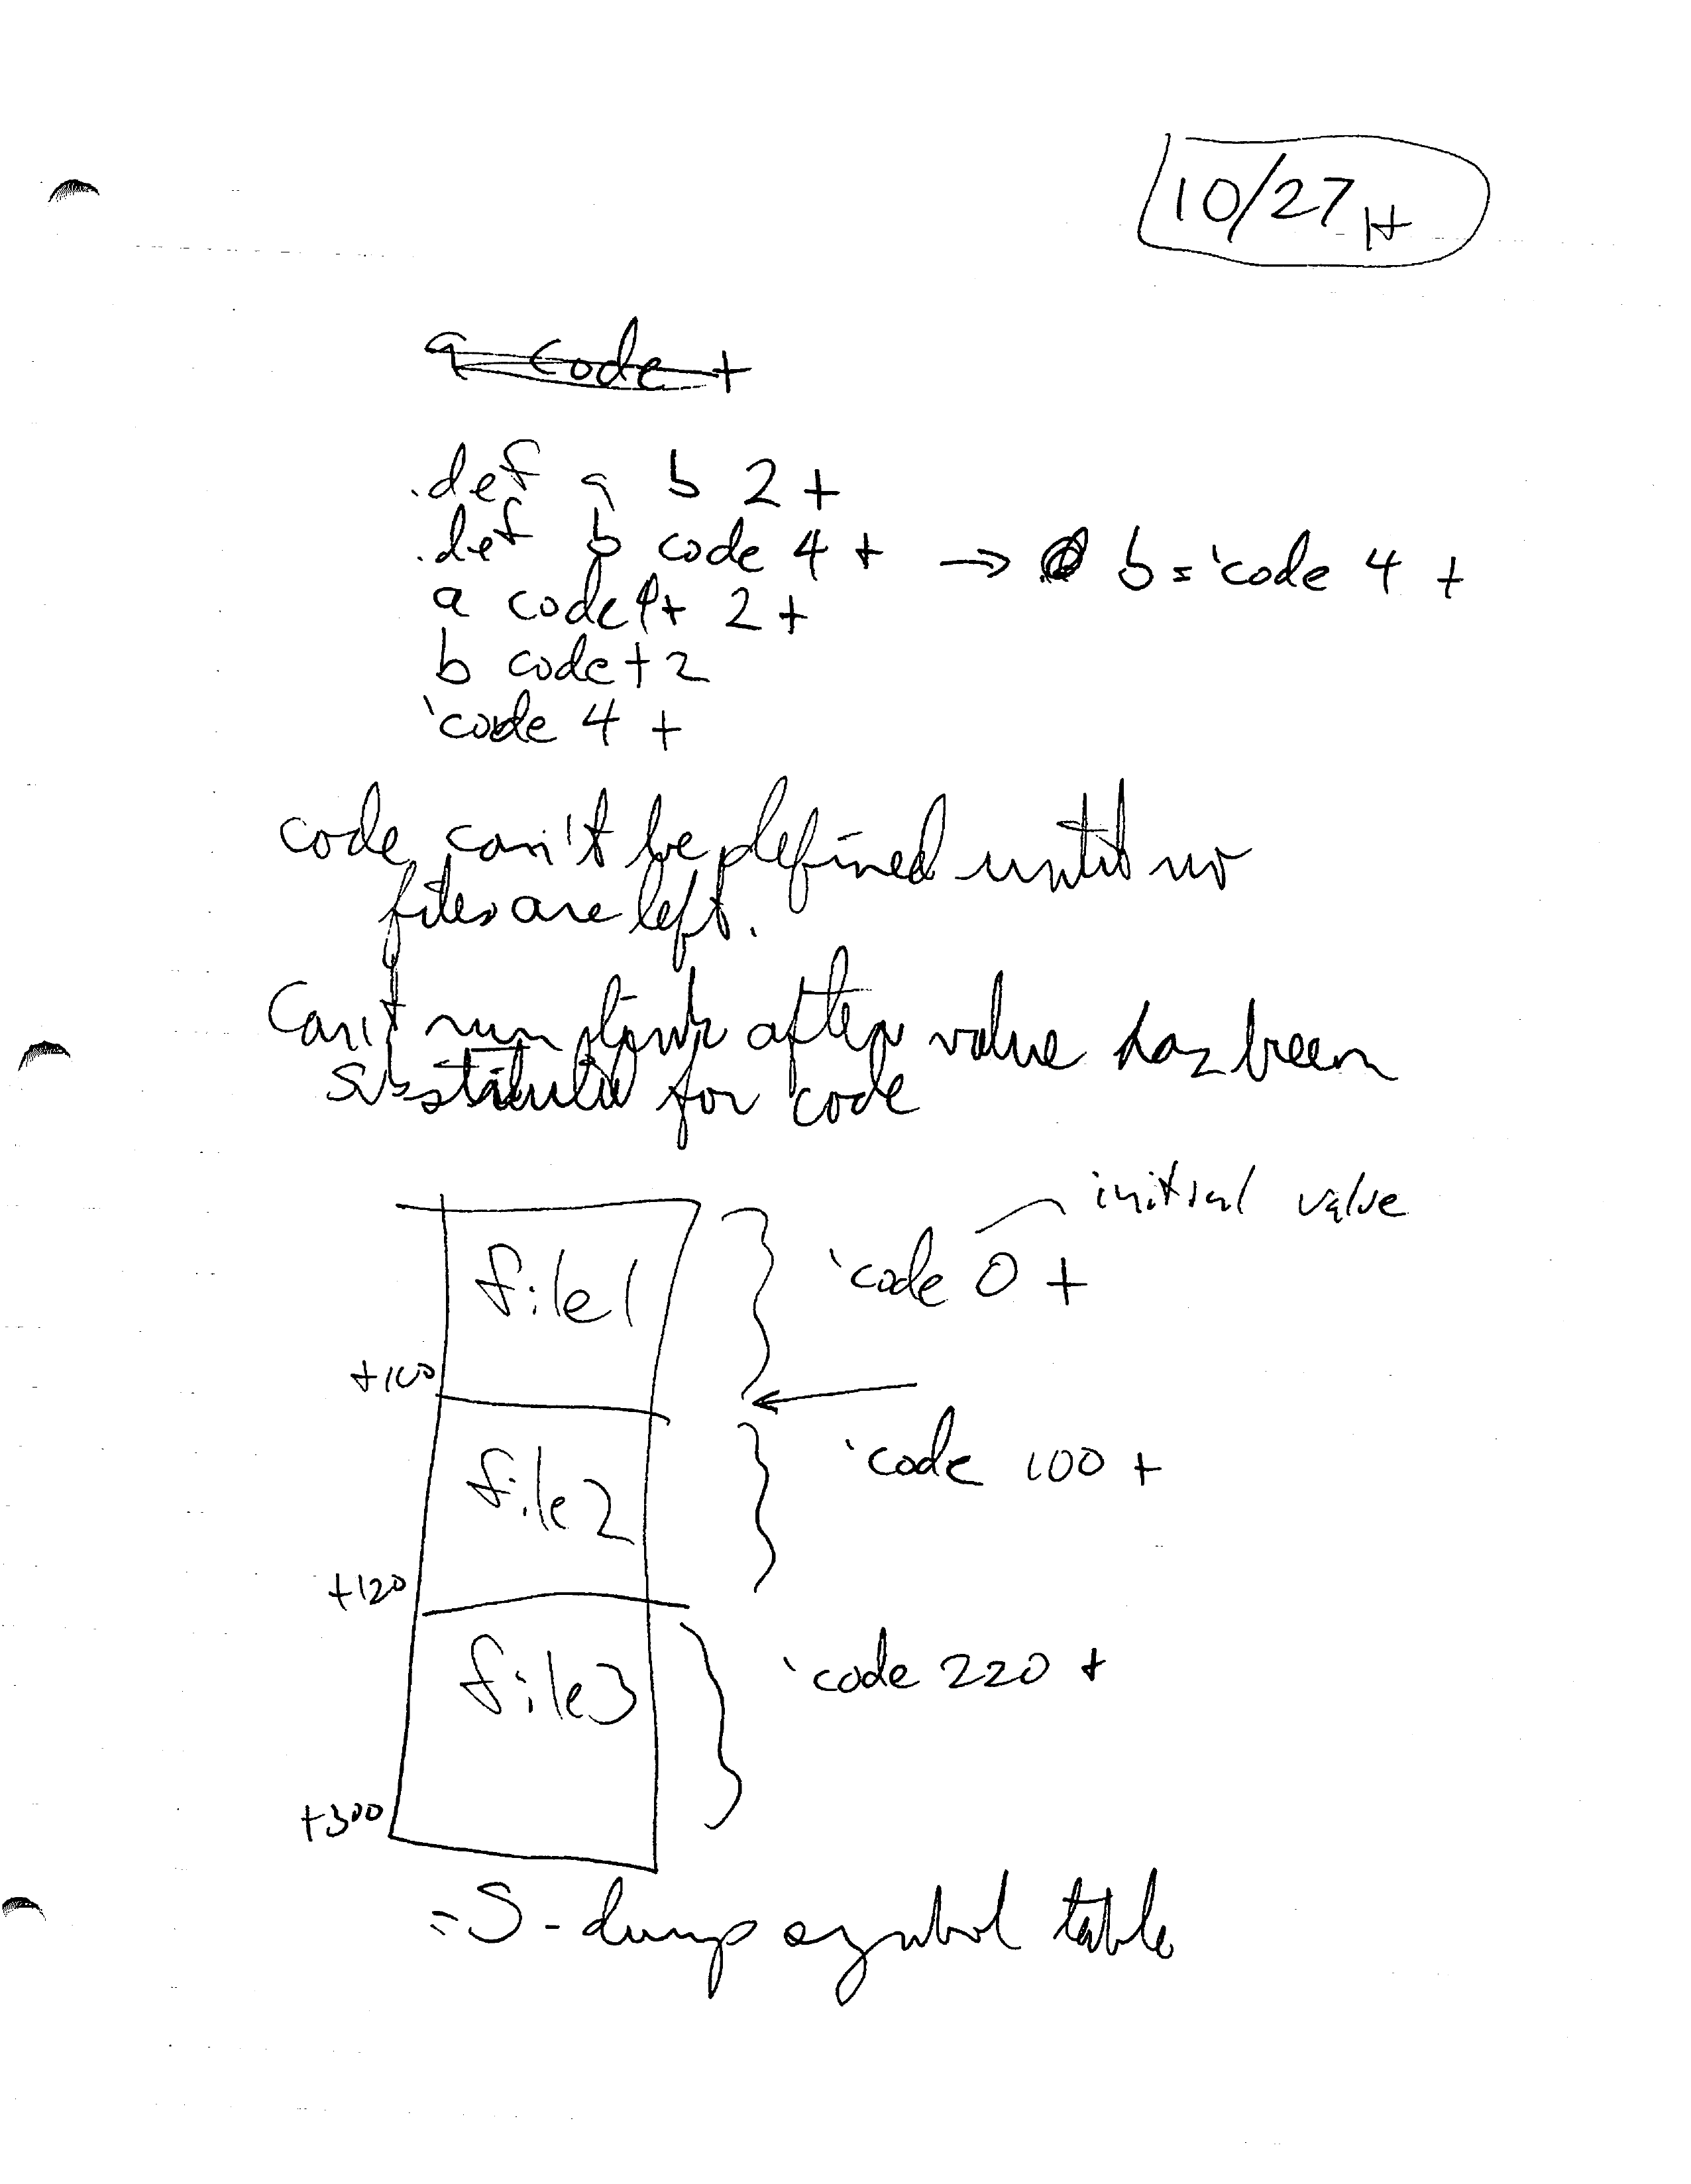 10/27
a code +
.def a b 2 +
.def b code 4 + → b = 'code 4 +
a code 4+ 2 +
b code + 2
'code 4 +
code can't be defined until no
files are left.
Can't run link after value has been
substituted for code
initial value
file1
'code 0 +
+100
'code 100 +
file2
+120
file3
'code 220 +
+300
=S - dump symbol table